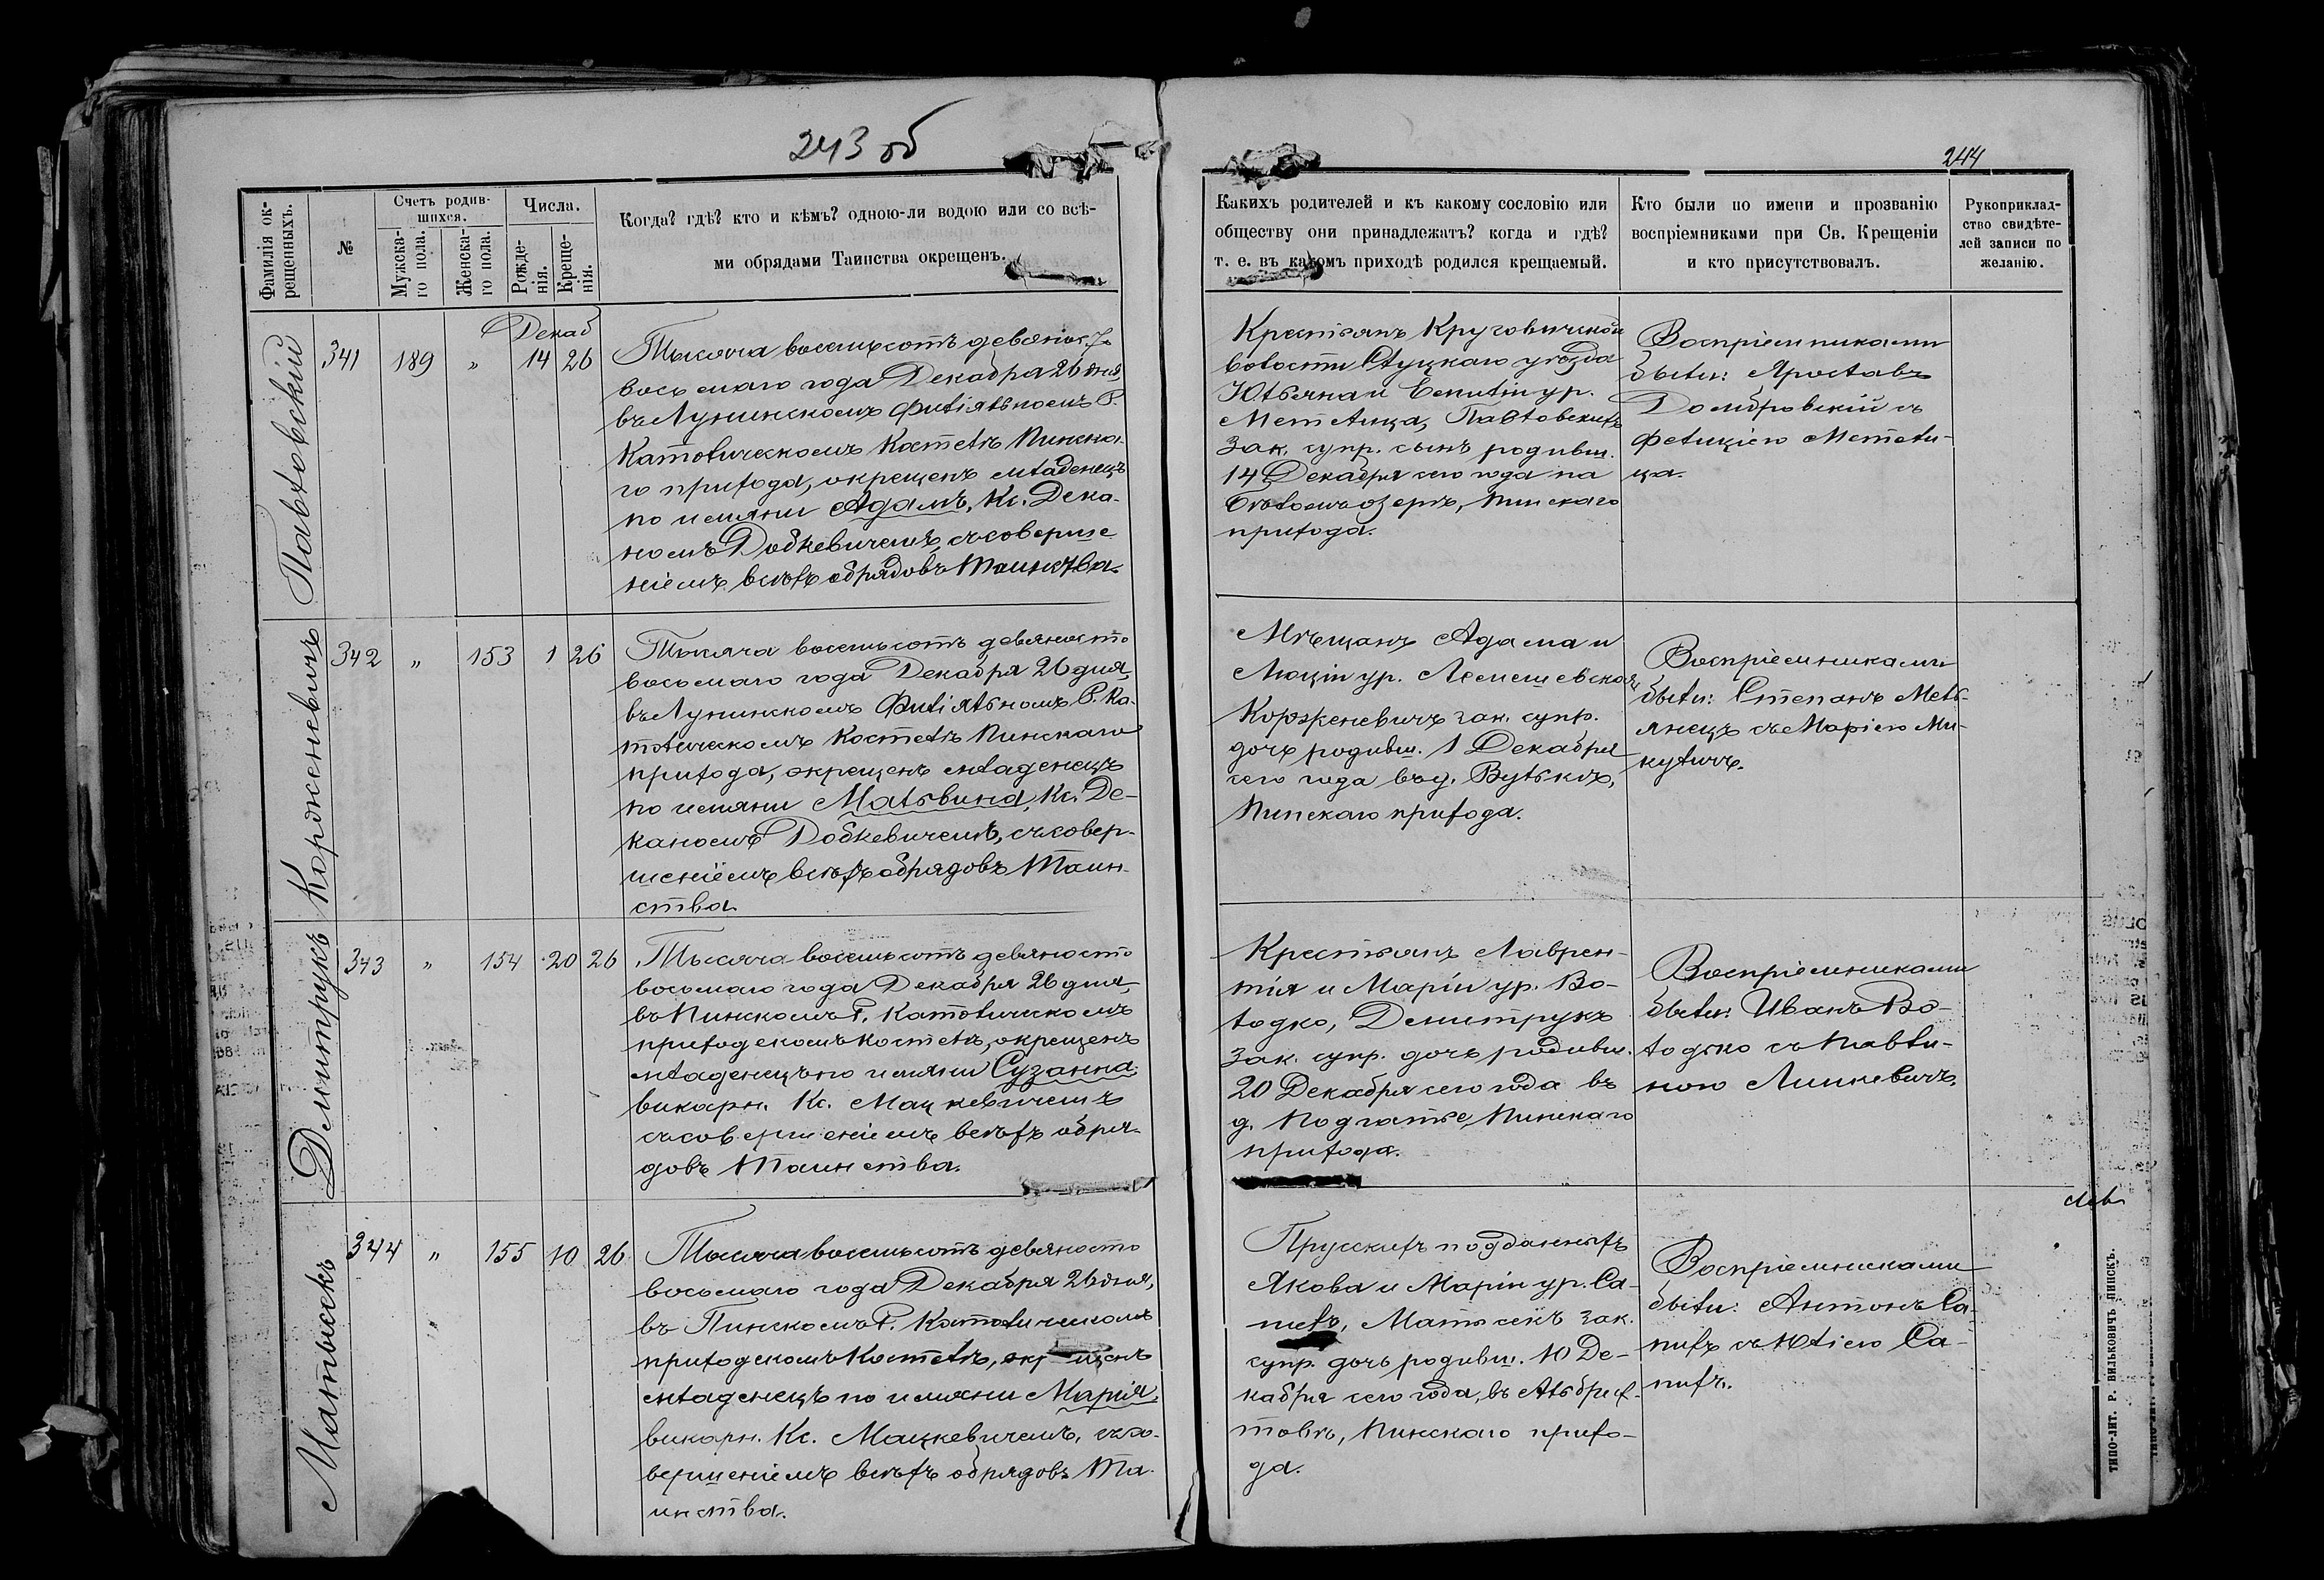 243 об
244
Фамилія ок-
рещенныхъ.
№
Счетъ родив-
шихся.
Мужска-
го пола.
Женска-
го пола.
Числа.
Рожде-
нія.
Креще-
нія.
Когда? гдѣ? кто и кѣмъ? одною-ли водою или со всѣ-
ми обрядами Таинства окрещенъ.
Какихъ родителей и къ какому сословію или
обществу они принадлежатъ? когда и гдѣ?
т. е. въ какомъ приходѣ родился крещаемый.
Кто были по имени и прозванію
воспріемниками при Св. Крещеніи
и кто присутствовалъ.
Рукоприклад-
ство свидѣте-
лей записи по
желанію.
Павловскій
341
189
„
Декаб
14
26
Тысяча восемьсотъ девяносто
восьмаго года Декабря 26 дня,
въ Лунинскомъ Филіяльномъ Р.
Католическомъ Костелѣ Пинска-
го прихода, окрещенъ младенецъ
по имяни Адамъ, Кс. Дека-
номъ Добкевичемъ, съ соверше
ніемъ всѣхъ обрядовъ Таинства.
Крестьянъ Круговичской
волости Слуцкаго уѣзда
Юльяна и Емиліи ур.
Метелица, Павловскихъ
зак. супр. сынъ родивш.
14 Декабря сего года на
Бѣломъ озерѣ, Пинскаго
прихода.
Воспріемниками
были: Ярославъ
Домбровскій съ
Фелиціею Метели-
ца.
Корженевичъ
342
„
153
1
26
Тысяча восемьсотъ девяносто
восьмаго года Декабря 26 дня,
въ Лунинскомъ Филіяльномъ Р. Ка-
толическомъ Костелѣ Пинскаго
прихода, окрещенъ младенецъ
по имяни Мальвина, Кс. Де-
каномъ Добкевичемъ, съ совер-
шеніемъ всѣхъ обрядовъ Таин-
ства.
Мѣщанъ Адама и
Люціи ур. Лемешевской
Корженевичъ зак. супр.
дочь родивш. 1 Декабря
сего года въ д. Вулькѣ,
Пинскаго прихода.
Воспріемниками
были: Степанъ Мель-
янецъ съ Маріею Ми-
куличъ.
Демитрукъ
343
„
154
20
26
Тысяча восемьсотъ девяносто
восьмаго года Декабря 26 дня,
въ Пинскомъ Р. Католическомъ
приходскомъ Костелѣ, окрещенъ
младенецъ по имяни Сузанна,
викарн. Кс. Мацкевичемъ
съ совершеніемъ всѣхъ обря-
довъ Таинства.
Крестьянъ Лаврен-
тія и Маріи ур. Во-
лодко, Демитрукъ
зак. супр. дочь родивш.
20 Декабря сего года въ
д. Подгатье, Пинскаго
прихода.
Воспріемниками
были: Иванъ Во-
лодко съ Павли-
ною Линкевичъ.
Матысекъ
344
„
155
10
26
Тысяча восемьсотъ девяносто
восьмаго года Декабря 26 дня,
въ Пинскомъ Р. Католическомъ
приходскомъ Костелѣ, окрещенъ
младенецъ по имяни Марія,
викарн. Кс. Мацкевичемъ, съ со-
вершеніемъ всѣхъ обрядовъ Та-
инства.
Прусскихъ подданныхъ
Якова и Маріи ур. Са-
пихъ, Матысекъ зак.
супр. дочь родивш. 10 Де-
кабря сего года, въ Альбрех-
товѣ, Пинскаго прихо-
да.
Воспріемниками
были: Антонъ Са-
пихъ съ Юліею Са-
пихъ.
ТИПО-ЛИТ. Р. ВИЛЬКОВИЧЪ ПИНСКЪ.